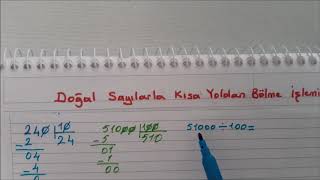 Doğal Sayılarla Kısa Yoldan Bölme İşlemi
240 | 10
- 2 | 24
04
- 4
0
51000 | 100
- 5 | 510
01
- 1
00
51000 ÷ 100 =